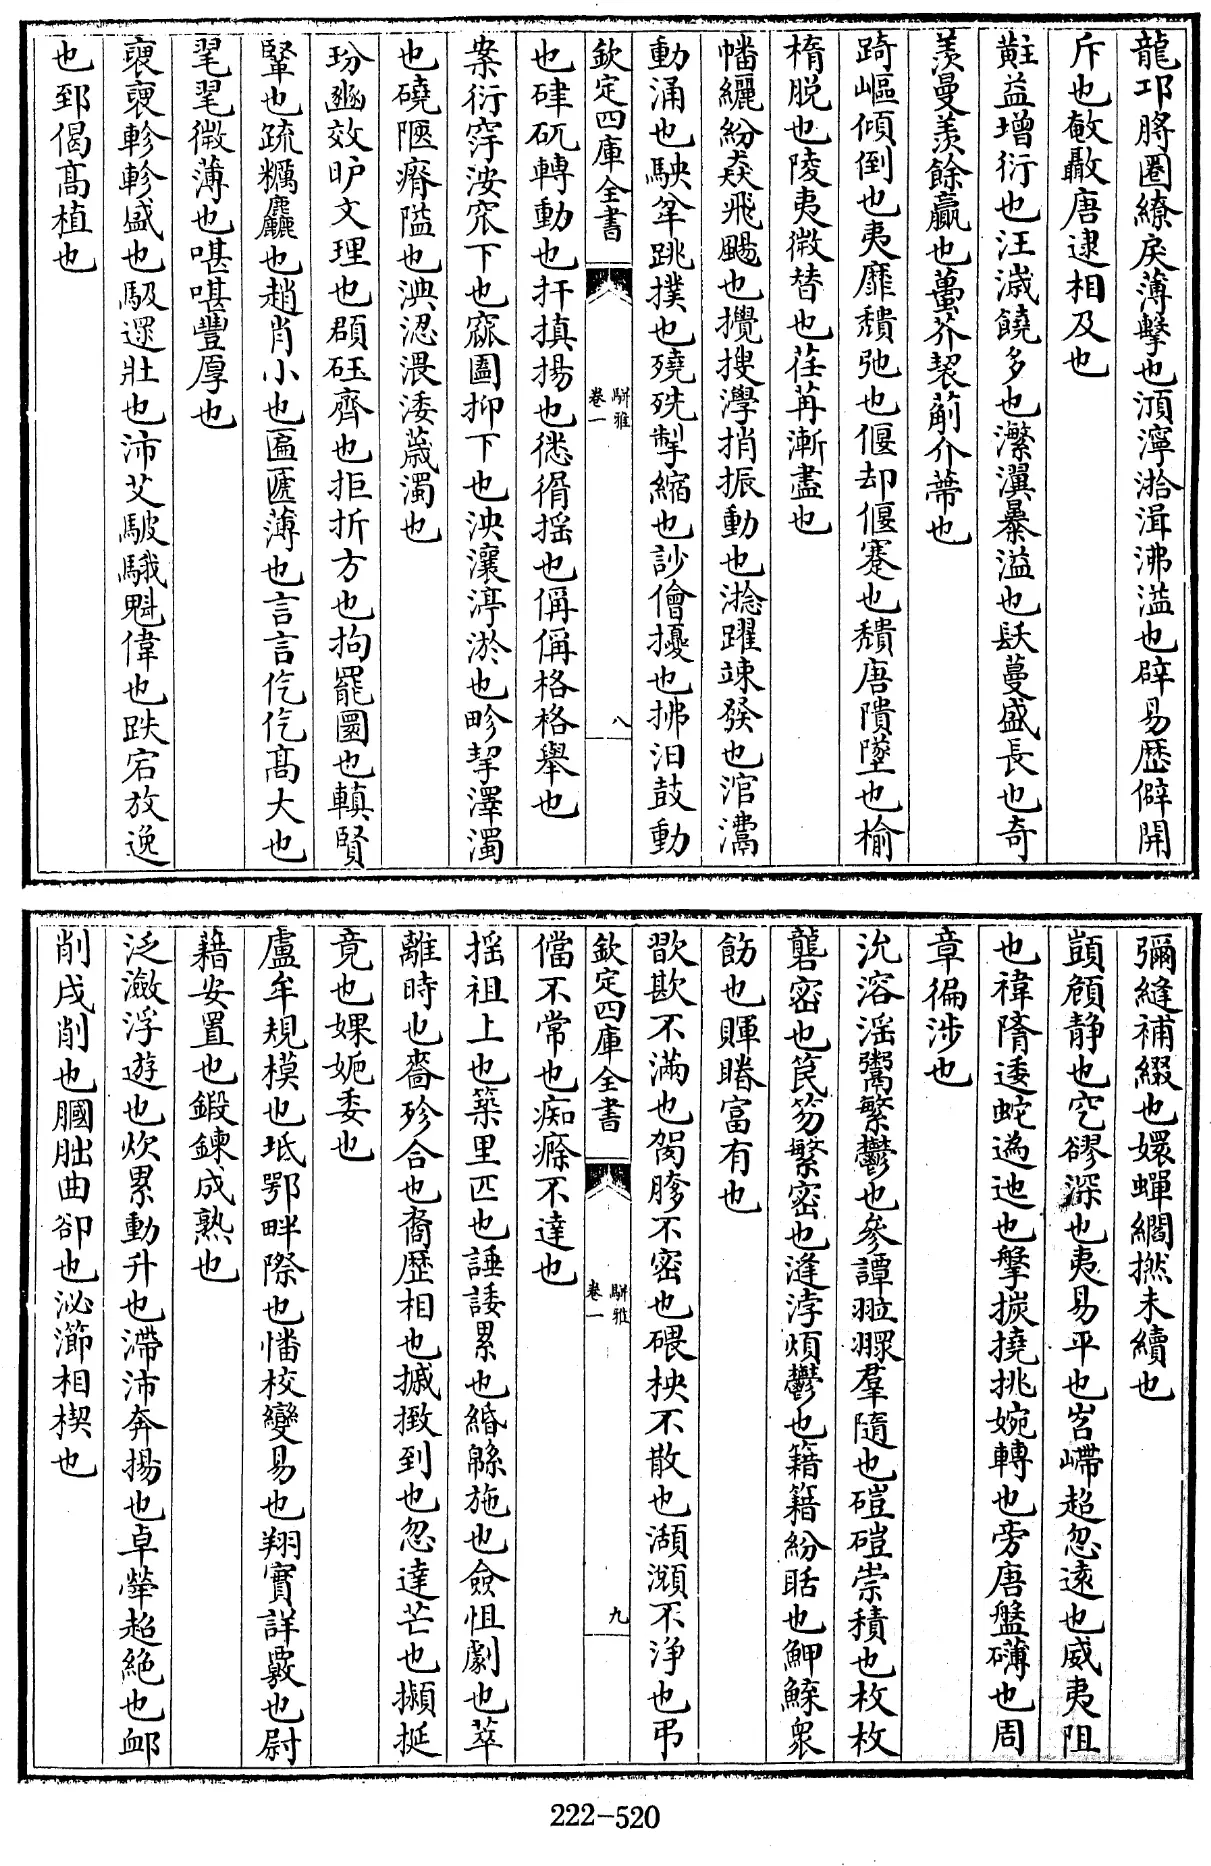 龍邛胳圈繚戾薄擊也澒濘湁湒沸溢也辟易歷僻開
斥也㪁㪚唐逮相及也
黈益增衍也汪濊饒多也瀿瀷暴溢也镺蔓盛長也奇
羨曼羨餘贏也蔓芥挈蒯介蔕也
踦嶇傾倒也夷靡穨弛也偃却偃蹇也穨唐隤墜也榆
楕脱也陵夷微替也荏苒漸盡也
幡纚紛猋飛颺也攪搜澩捎振動也淰躍竦發也涫瀹
動涌也駚䍐跳撲也殑殑掣縮也訬儈擾也拂汨鼓動
欽定四庫全書
駢雅
卷一
八
也硉矹轉動也扞搷揚也㣯㣯揺也偁偁格格舉也
案衍窏洝窊下也窳圔抑下也泱瀼渟淤也畛挈澤濁
也磽陿瘠隘也淟涊渨涹薉濁也
玢豳效昈文理也頵砡齊也拒折方也拘罷圜也䡩賢
鞏也疏糲麤也趙肖小也匾匜薄也言言仡仡髙大也
毣毣微薄也啿啿豐厚也
裒裒軫軫盛也馺遝壯也沛艾駊騀魁偉也跌宕放逸
也郅偈髙植也
彌縫補綴也嬛蟬繝撚未續也
顗頠静也窆㵳深也夷易平也岧㠿超忽逺也威夷阻
也禕隋逶蛇逶迆也㨊㨡撓挑婉轉也旁唐盤礴也周
章徧涉也
沇溶淫鬻繁鬱也參譚翋䎀羣隨也磑磑崇積也枚枚
礱密也笢笏繁密也漨浡煩鬱也籍籍紛聒也魻鰇衆
飭也賱賰富有也
歠欺不滿也䂟䐁不密也碨柍不散也澒濒不浄也弔
欽定四庫全書
駢雅
卷一
九
儅不常也痴㾻不達也
揺祖上也築里匹也諈諉累也緍緜施也僉怚劇也萃
離時也嗇殄合也裔歴相也摵撽到也忽達芒也攧挻
竟也婐妮委也
盧牟規模也坻鄂畔際也憣校變易也翔實詳覈也尉
藉安置也鍛鍊成熟也
泛瀲浮遊也炊累動升也滯沛奔揚也卓犖超絶也卹
削戌削也膕朏曲卻也泌㴙相楔也
222-520